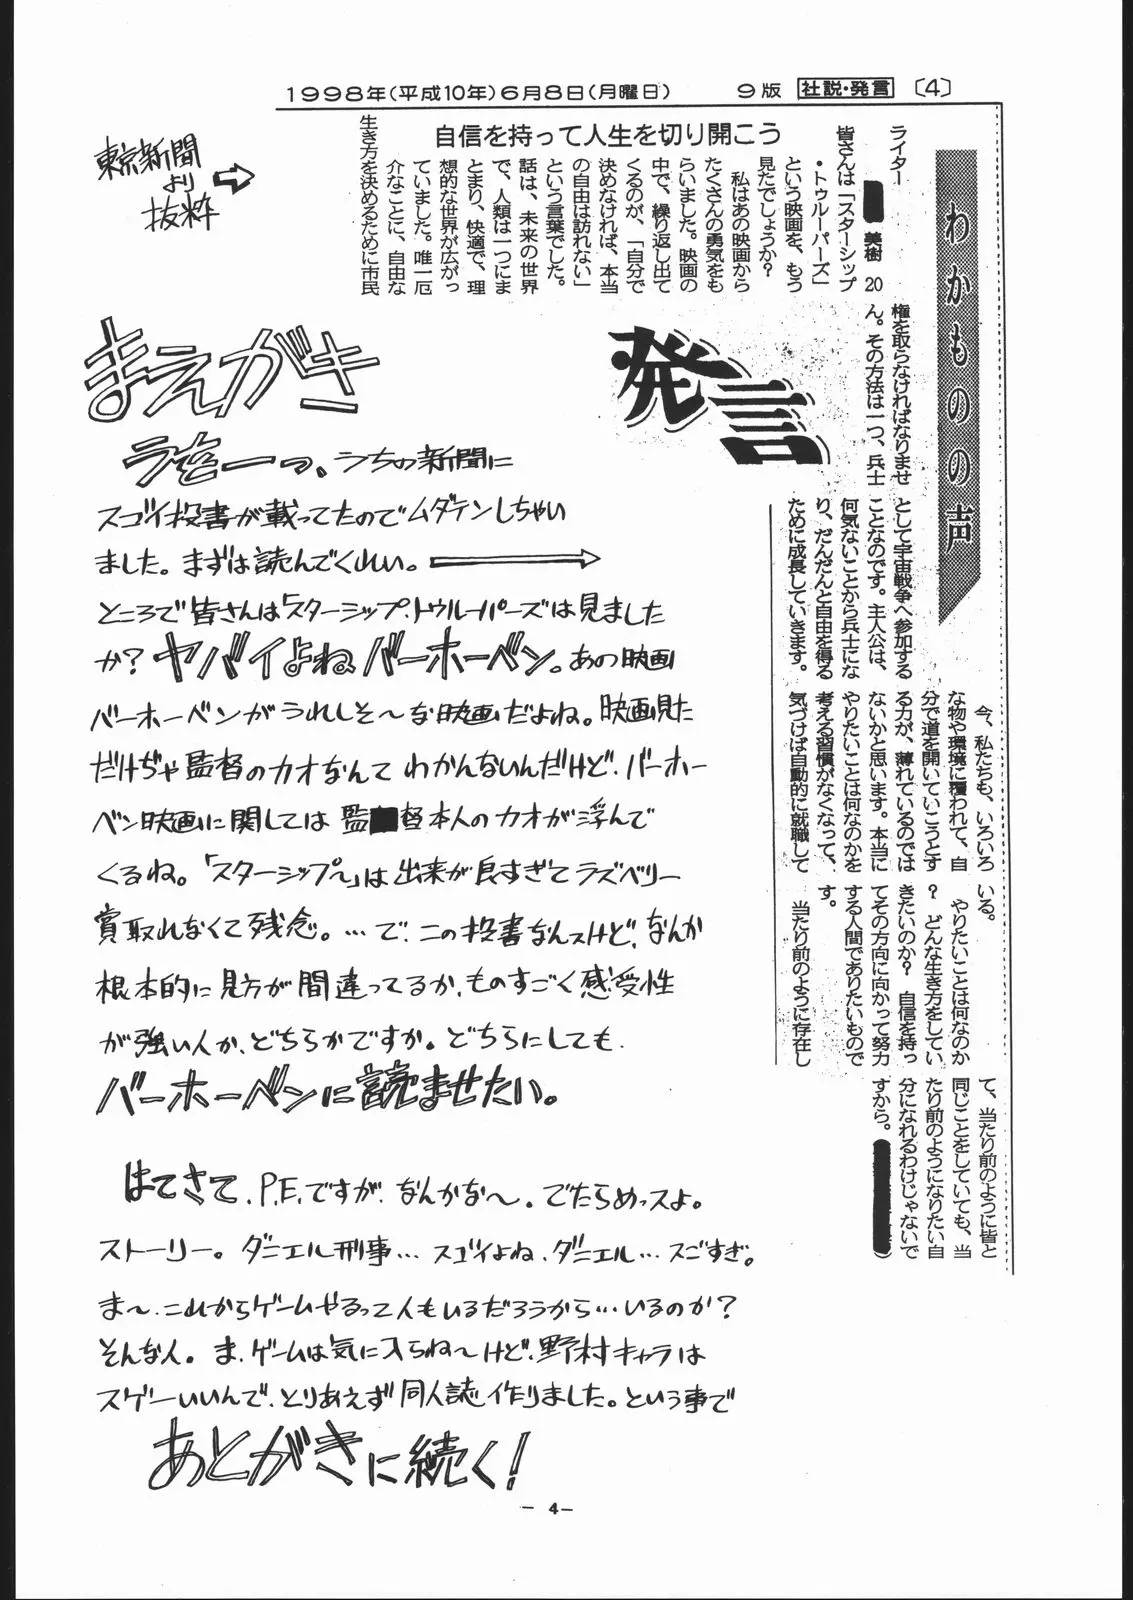 1998年(平成10年)6月8日(月曜日)　9版　社説・発言　〔4〕
わかものの声
自信を持って人生を切り開こう
ライター
美樹 20
皆さんは「スターシップ
・トゥルーパーズ」
という映画を、もう
見たでしょうか?
私はあの映画から
たくさんの勇気をも
らいました。映画の
中で、繰り返し出て
くるのが、「自分で
決めなければ、本当
の自由は訪れない」
という言葉でした。
話は、未来の世界
で、人類は一つにま
とまり、快適で、理
想的な世界が広がっ
ていました。唯一厄
介なことに、自由な
生き方を決めるために市民
権を取らなければなりませ
ん。その方法は一つ、兵士
として宇宙戦争へ参加する
ことなのです。主人公は、
何気ないことから兵士にな
り、だんだんと自由を得る
ために成長していきます。
今、私たちも、いろいろ
な物や環境に覆われて、自
分で道を開いていこうとす
る力が、薄れているのでは
ないかと思います。本当に
やりたいことは何なのかを
考える習慣がなくなって、
気づけば自動的に就職して
いる。
やりたいことは何なのか
? どんな生き方をしてい
きたいのか? 自信を持っ
てその方向に向かって努力
する人間でありたいもので
す。
当たり前のように存在し
て、当たり前のように皆と
同じことをしていても、当
たり前のようになりたい自
分になれるわけじゃないで
すから。
)
発言
東京新聞
より
抜粋
まえがき
ラをーっ、うちの新聞に
スゴイ投書が載ってたのでムダテンしちゃい
ました。まずは読んでくれい。
ところで皆さんは「スターシップ・トゥルーパーズ」は見ました
か? ヤバイよねバーホーベン。あの映画
バーホーベンがうれしそ〜な映画だよね。映画見た
だけぢゃ監督のカオなんてわかんないんだけど、バーホー
ベン映画に関しては監督本人のカオが浮んで
くるね。「スターシップ〜」は出来が良すぎてラズベリー
賞取れなくて残念。…で、この投書なんスけど、なんか
根本的に見方が間違ってるか、ものすごく感受性
が強い人か、どちらかですか。どちらにしても、
バーホーベンに読ませたい。
はてさて、P.E.ですが、なんかな〜。でたらめっスよ。
ストーリー。ダニエル刑事…スゴイよね、ダニエル…スごすぎ。
ま〜、これからゲームやるって人もいるだろうから…いるのか?
そんな人。ま、ゲームは気に入らね〜けど、野村キャラは
スゲーいいんで、とりあえず同人誌作りました。という事で
あとがきに続く!
- 4 -